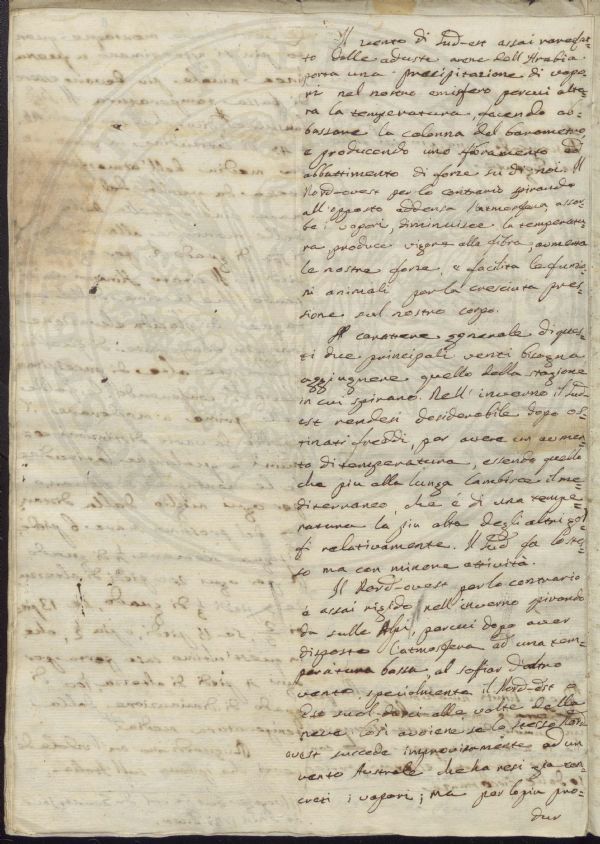 Il vento di Sud-est assai rarefat=
to dalle aduste arene dell'Arabia
porta una precipitazione di vapo=
ri nel nostro emisfero percui alte=
ra la temperatura facendo ab=
bassare la colonna del barometro,
e producendo uno sfibramento ed
abbattimento di forze su di noi. Il
Nord-ovest per lo contrario spirando
all'opposto addensa l'atmosfera assor=
be i vapori diminuisce la temperatu=
ra, produce vigore alla fibra, aumenta
le nostre forze, e facilita le funzio=
ni animali per la cresciuta pres=
sione sul nostro corpo.
Al carattere generale di ques=
ti due principali venti bisogna
aggiugnere quello della stagione
in cui spirano. Nell'inverno il Sud
est rendesi desiderabile dopo os=
tinati freddi, per avere un aumen=
to di temperatura, essendo quello
che piu alla lunga lambisce il me=
diterraneo, che è di una tempe=
ratura la piu alta degli altri gol=
fi relativamente. Il Sud fa lo stes=
so ma con minore attività.
Il Nord-ovest per lo contrario
è assai rigido nell'inverno spirando
da sulle Alpi, percui dopo aver
disposto l'atmosfera ad una tem=
peratura bassa al soffiar d'altro
vento, specialmente il Nord-est
suol darci alle volte della
neve. Così avviene se lo stesso Nord
ovest succede improvisamente ad un
vento Australe che ha resi gia con=
creti i vapori; ma per lo piu pro=
dur